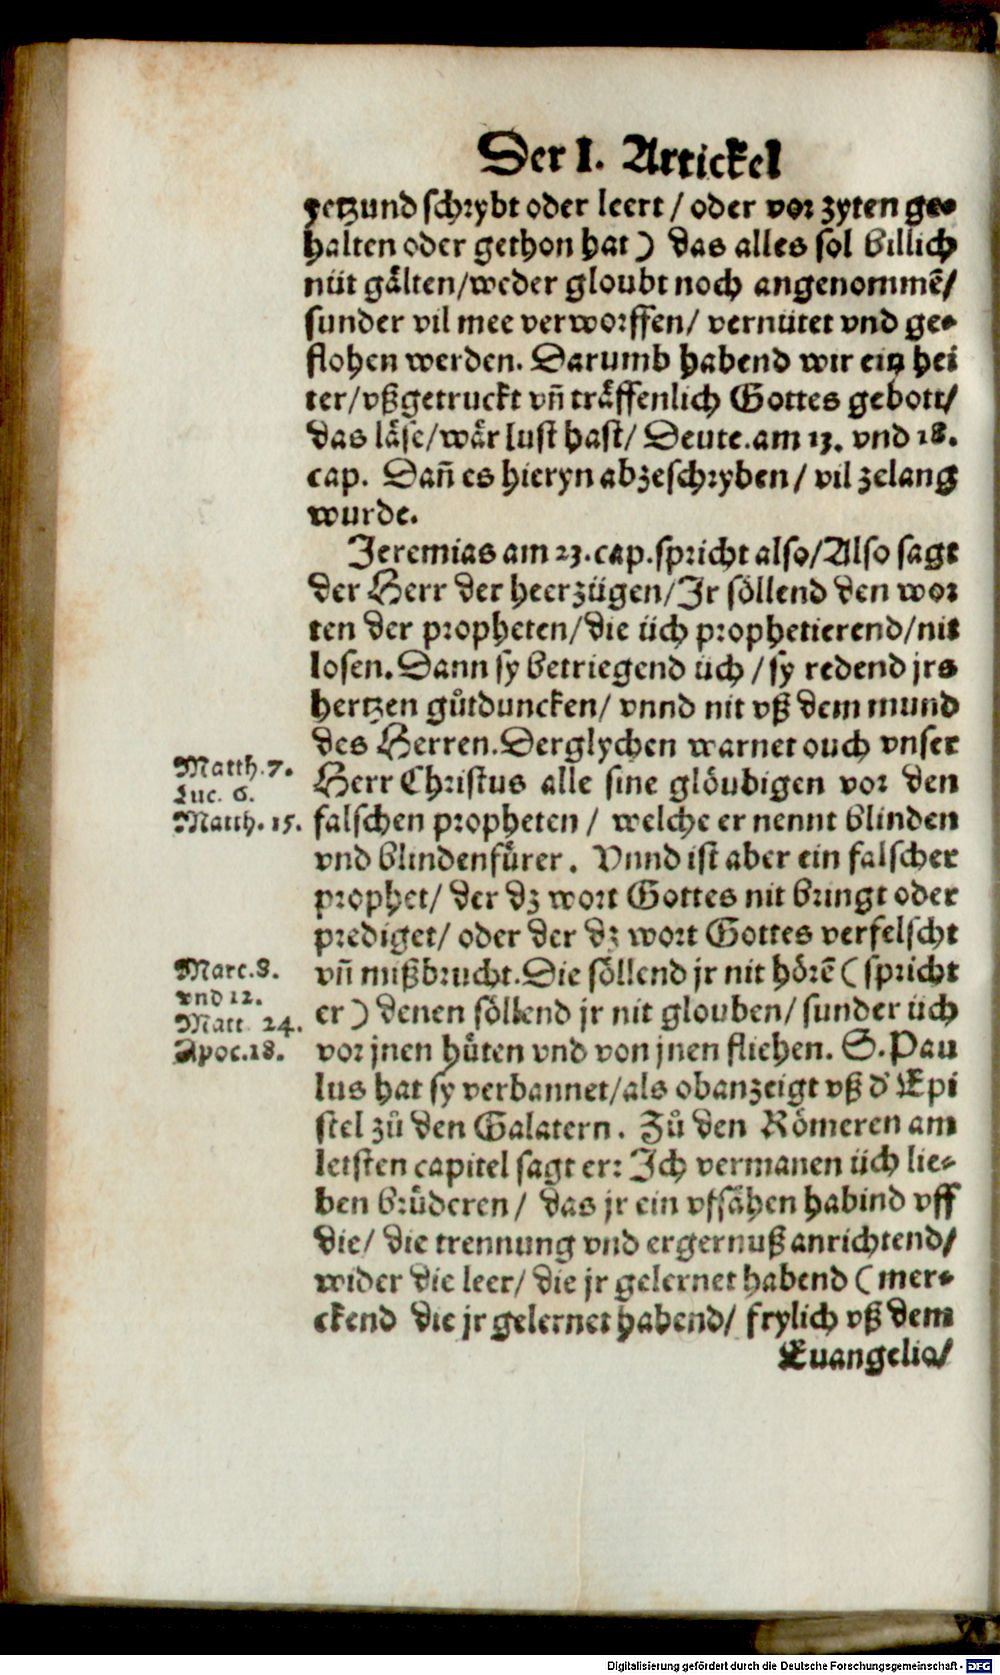 Der I. Artickel
yetzund schrybt oder leert / oder vor zyten ge-
halten oder gethon hat ) das alles sol billich
nüt gälten/weder gloubt noch angenommẽ/
sunder vil mee verworffen/ vernütet vnd ge-
flohen werden. Darumb habend wir ein hei
ter/vßgetruckt vñ träffenlich Gottes gebott/
das läse/wär lust hast/ Deute.am 13. vnd 18.
cap. Dañ es hieryn abzeschryben / vil zelang
wurde.
Jeremias am 23.cap.spricht also/Also sagt
der Herr der heerzügen/Jr söllend den wor
ten der propheten/die üch prophetierend/nit
losen. Dann sy betriegend üch / sy redend jrs
hertzen gůtduncken/ vnnd nit vß dem mund
des Herren.Derglychen warnet ouch vnser
Matth.7.
Luc. 6.
Matth. 15.
Herr Christus alle sine glöubigen vor den
falschen propheten / welche er nennt blinden
vnd blindenfürer. Vnnd ist aber ein falscher
prophet/ der dz wort Gottes nit bringt oder
prediget/ oder der dz wort Gottes verfelscht
Marc.8.
vnd 12.
Matt 24.
Apoc.18.
vñ mißbrucht.Die söllend jr nit hörẽ ( spricht
er ) denen söllend jr nit glouben/ sunder üch
vor jnen hüten vnd von jnen fliehen. S.Pau
lus hat sy verbannet/als obanzeigt vß d' Epi
stel zů den Galatern. Zů den Römeren am
letsten capitel sagt er: Jch vermanen üch lie-
ben brüderen / das jr ein vfsähen habind vff
die/ die trennung vnd ergernuß anrichtend/
wider die leer/ die jr gelernet habend ( mer-
ckend die jr gelernet habend/ frylich vß dem
Euangelio/
Digitalisierung gefördert durch die Deutsche Forschungsgemeinschaft - DFG